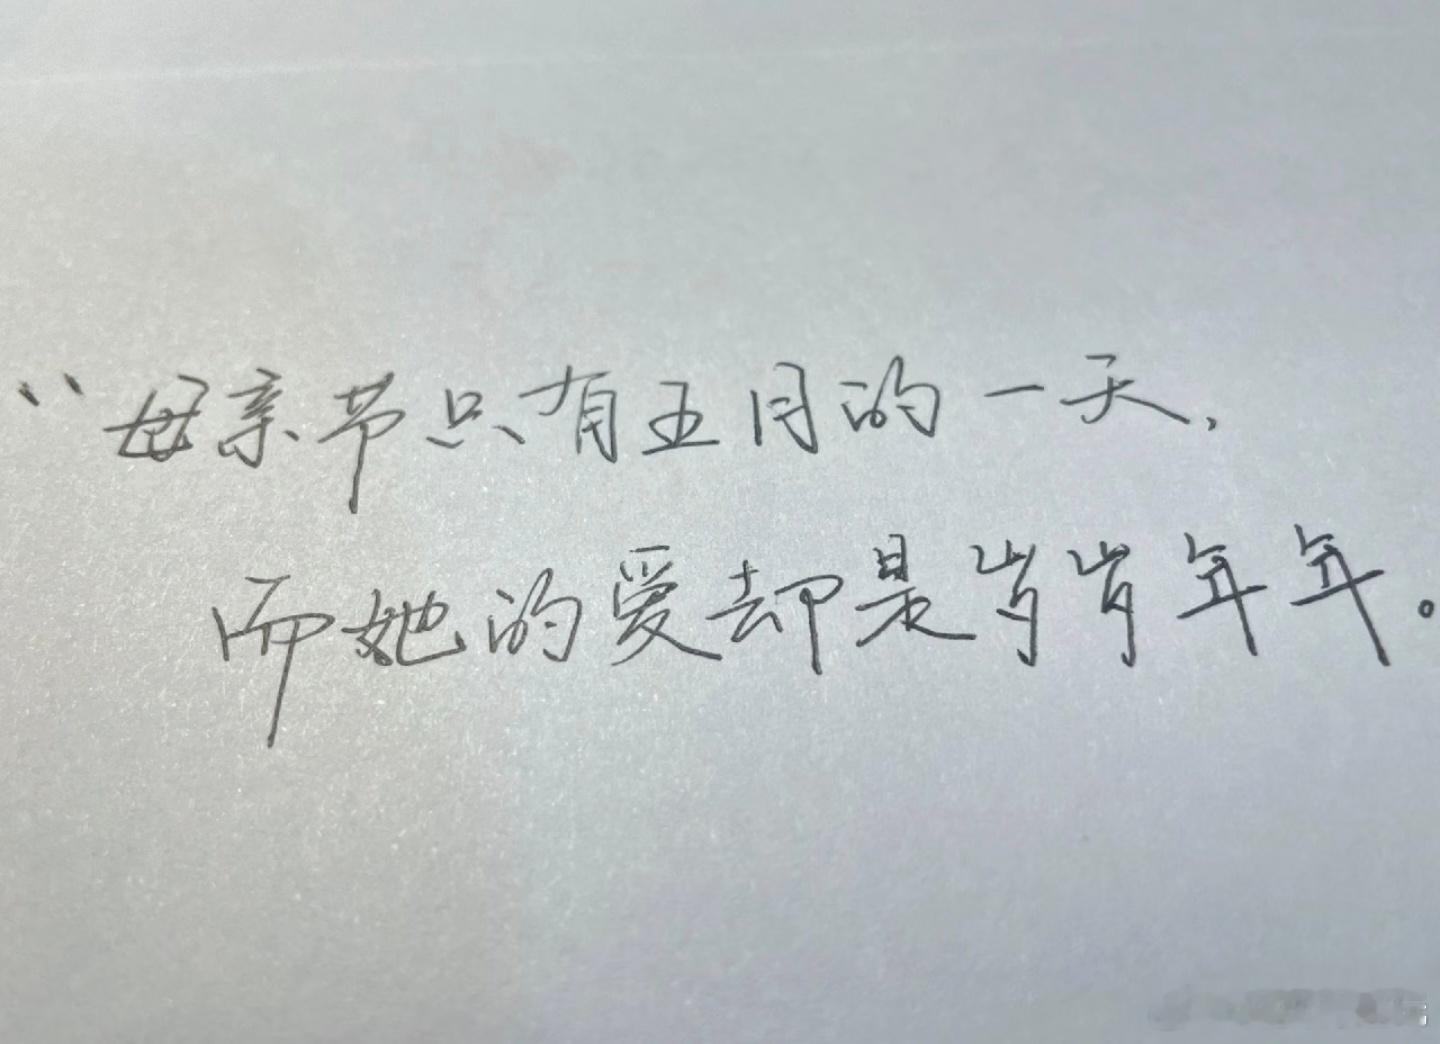 “母亲节只有五月的一天,
而她的爱却是岁岁年年。